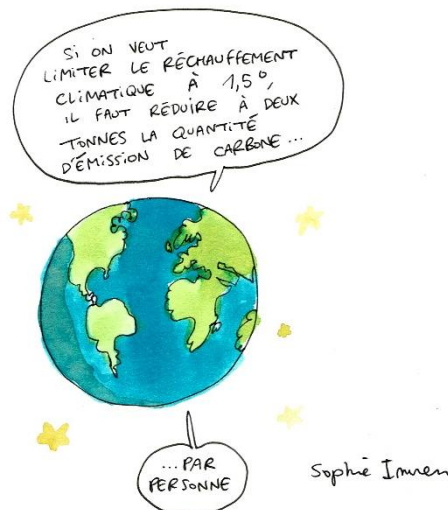 SI ON VEUT
LIMITER LE RÉCHAUFFEMENT
CLIMATIQUE À 1,5°,
IL FAUT RÉDUIRE À DEUX
TONNES LA QUANTITÉ
D'ÉMISSION DE CARBONE...
...PAR
PERSONNE
Sophie